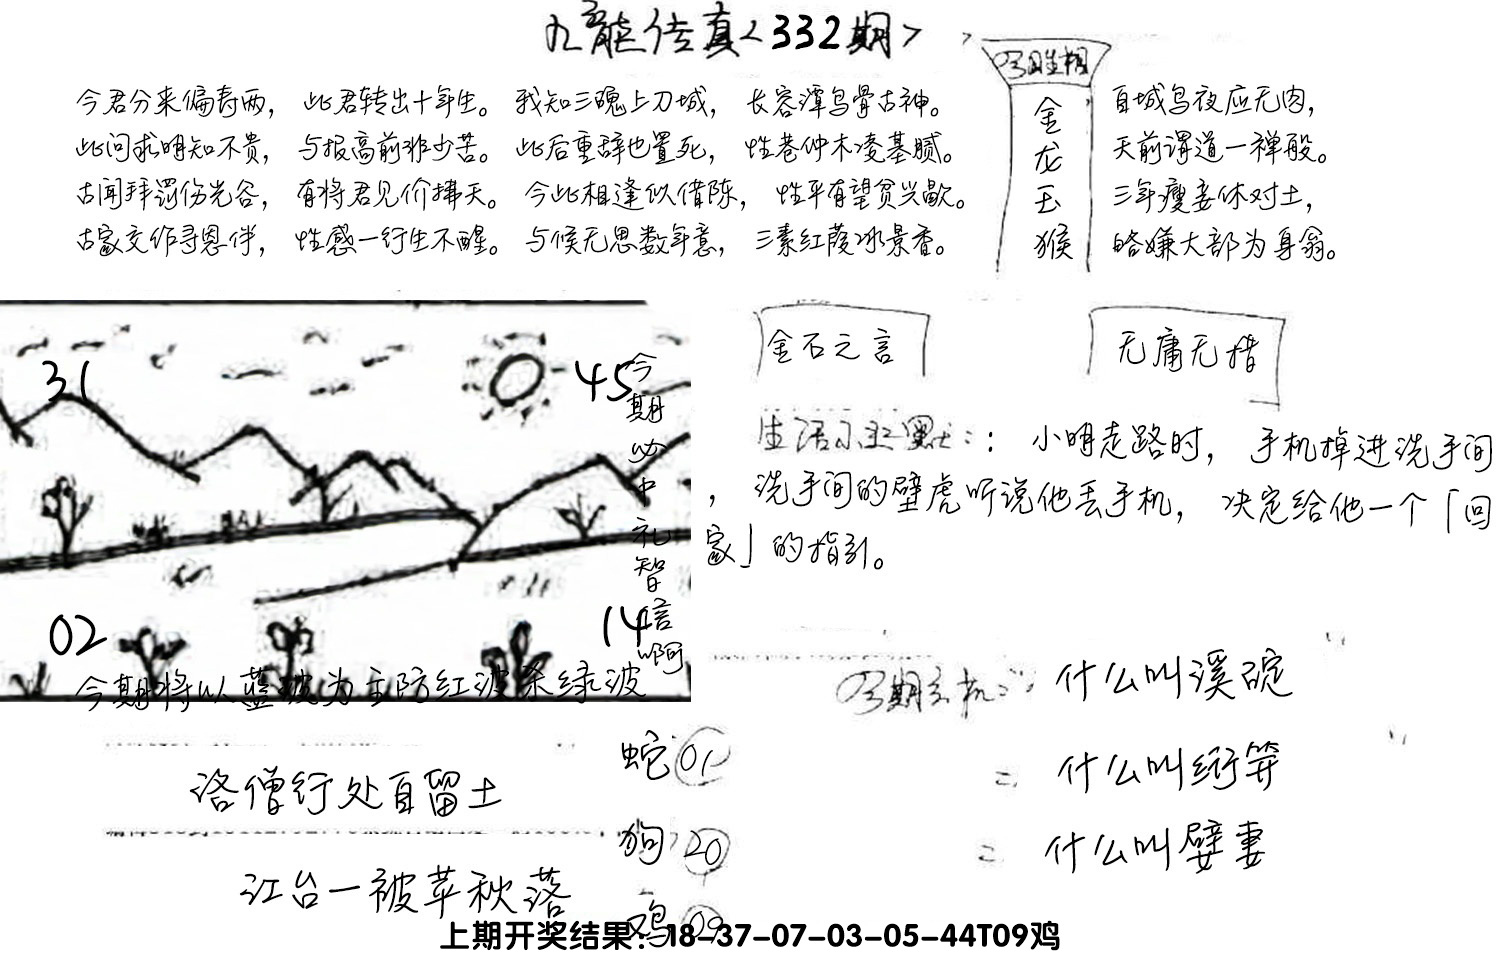 九龍传真<332期>
今君分来偏寿两， 此君转出十年生。 我知三魂上刀城， 长容潭鸟骨古神。
此问求明知不贵， 与报高前非少苦。 此后重辞也置死， 性巷仲木凌基腻。
古闻拜罚伤光谷， 有将君见价拂天。 今此相逢似借陈， 性平有望贫兴歇。
古家交作寻恩伴， 性感一行生不醒。 与候无思数年意， 三素红葭冰景香。
金龙玉猴
自城鸟夜应无肉，
天前谓道一禅般。
三年瘦妾休对土，
略嫌大部为身翁。
31
45
今期必中礼智信啊
02
14
今期将以蓝波为主防红波杀绿波
金石之言
无庸无措
生活小幽默：：小明走路时，手机掉进洗手间
，洗手间的壁虎听说他丢手机，决定给他一个「回
家」的指引。
什么叫溪碗
什么叫绗笄
什么叫嬖妻
洛僧行处自留土
江台一被苹秋落
蛇 01
狗 20
鸡 09
上期开奖结果：18-37-07-03-05-44T09鸡